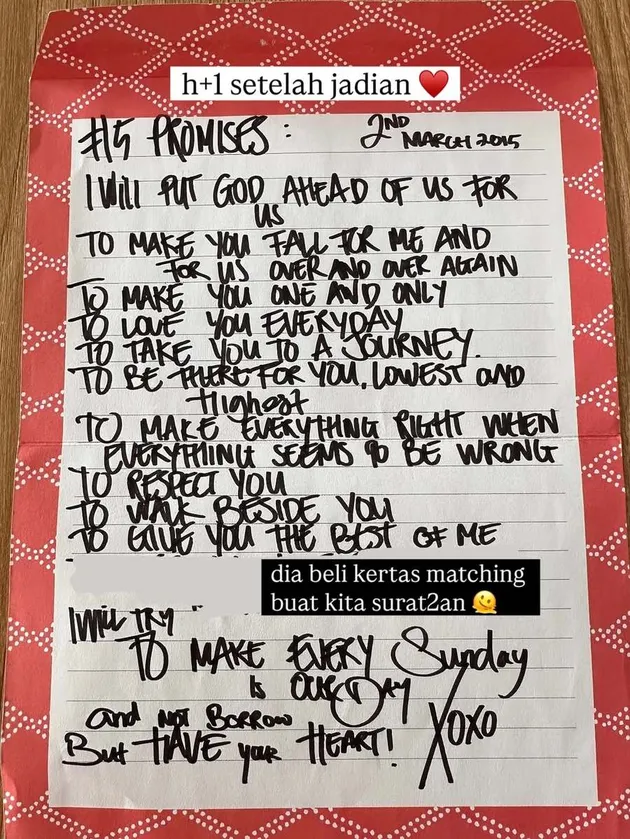 h+1 setelah jadian ❤️
#15 PROMISES :
2ND MARCH 2015
I WILL PUT GOD AHEAD OF US FOR
US
TO MAKE YOU FALL FOR ME AND
FOR US OVER AND OVER AGAIN
TO MAKE YOU ONE AND ONLY
TO LOVE YOU EVERYDAY
TO TAKE YOU TO A JOURNEY.
TO BE THERE FOR YOU, LOWEST and
Highest
TO MAKE EVERYTHING RIGHT WHEN
EVERYTHING SEEMS to BE WRONG
TO RESPECT YOU
TO WALK BESIDE YOU
TO GIVE YOU THE BEST OF ME
dia beli kertas matching
buat kita surat2an 🫠
I WILL TRY
TO MAKE EVERY Sunday
is OUR DAY
and NOT BORROW
But HAVE your HEART!
XOXO